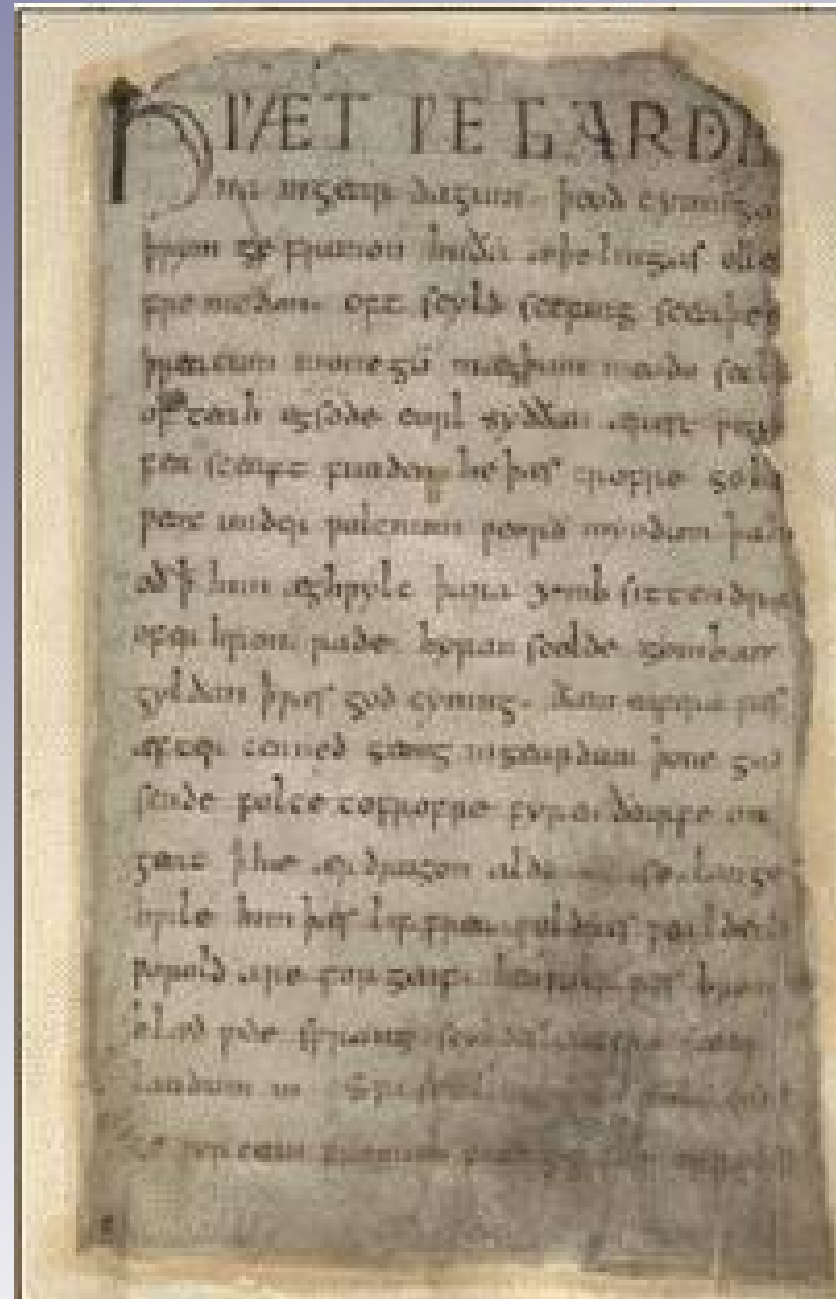 HǷÆT ǷE GARDE
na ingear dagum. þeod cyninga
þrym ge frunon huða æþelingas elle
fremedon. oft scyld scefing sceaþen
þreatum monegū mægþum meodo setl
of teah egsode eorl syððan ærest ƿear
fea sceaft funden he þæs frofre geba
ƿeox under ƿolcnum ƿeorð myndum þah
oð ꝥ him æghƿylc þara ymb sittendra
ofer hron rade hyran scolde gomban
gyldan ꝥ ƿæs god cyning. ðæm eafera ƿæs
æfter cenned geong in geardum þone god
sende folce tofrofre fyren ðearfe on
geat ꝥ hie ær drugon aldor ase. lange
hƿile him þæs lif frea ƿuldres ƿealdend
ƿorold are for geaf. beoƿulf ƿæs breme
blæd ƿide sprang scyldes eafera scede
landum in
ge ƿyrcean fromum feoh giftum